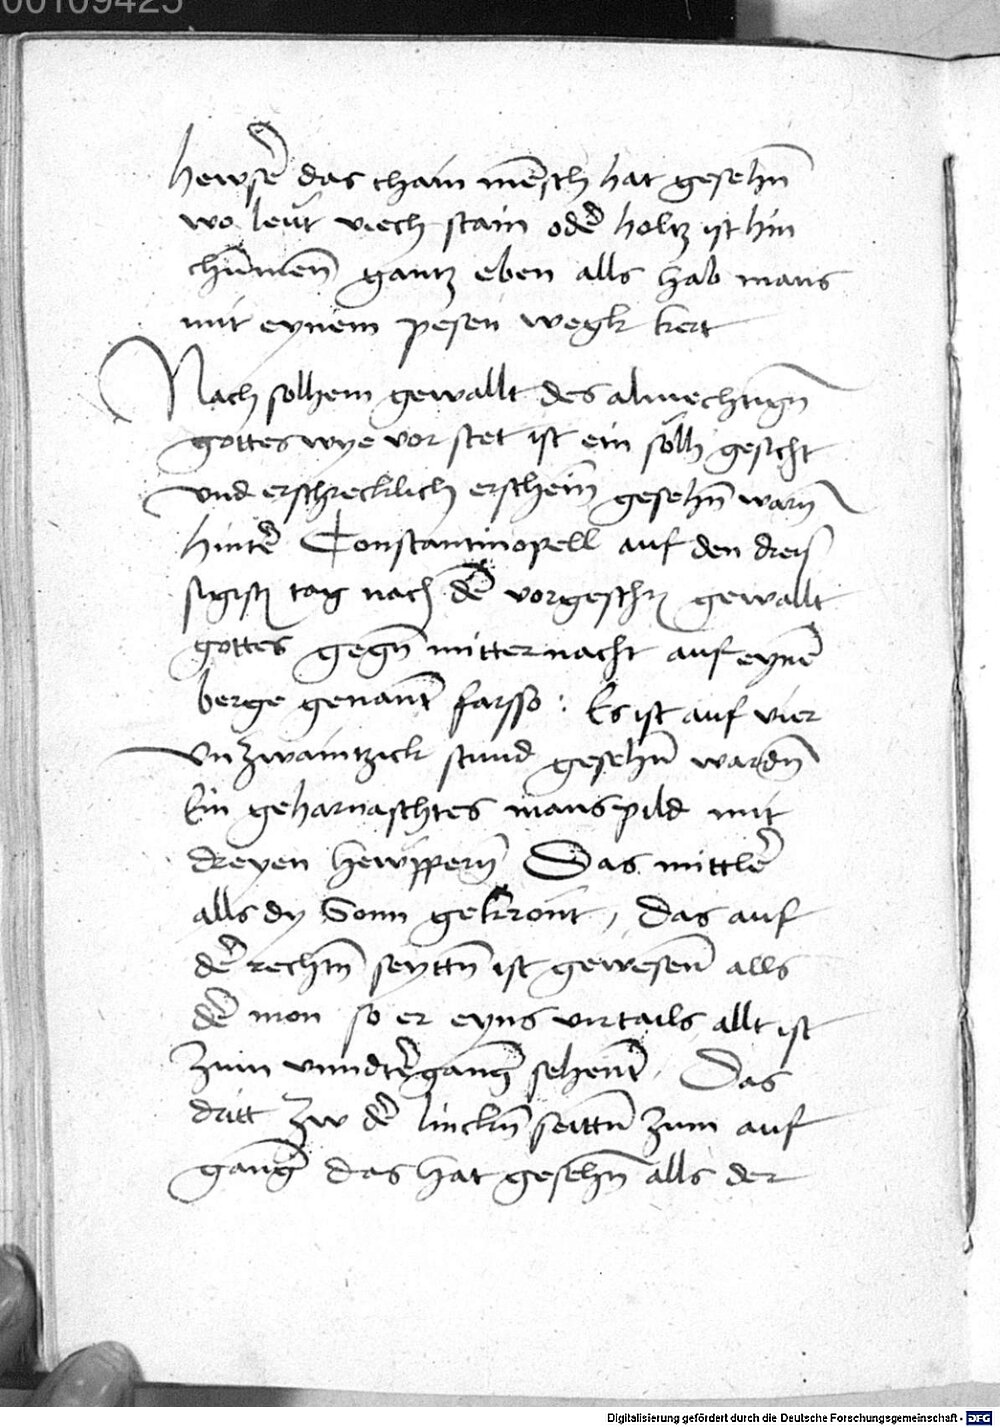 00109425
hewser das chain mensch hat gesehn
wo leut viech stain oder holtz ist hin
chumen gantz eben alls hab mans
mit eynem pesen wegk kert
Nach solhem gewallt des almechtign
gottes wye vor stet ist ein sölh gesicht
vnd erschrecklich erschein gesehn warn
hinter Constantinopell auf den dreis
sigist tag nach dem vorgeschr gewallt
gottes gegn mitternacht auf eynem
berge genant farsso : Es ist auf vier
vnzwaintzick stund gesehn wardn
Ein geharnaschtes manspild mit
dreyen hewppern Das mittler
alls dy Sonn gekront, das auf
der rechtn seyttn ist gewesen alls
der mon so er eyns virtails allt ist
zum vnndtergang sehent. Das
dritt zw der linckn seittn zum auf
gang das hat gesehn alls der
Digitalisierung gefördert durch die Deutsche Forschungsgemeinschaft - DFG